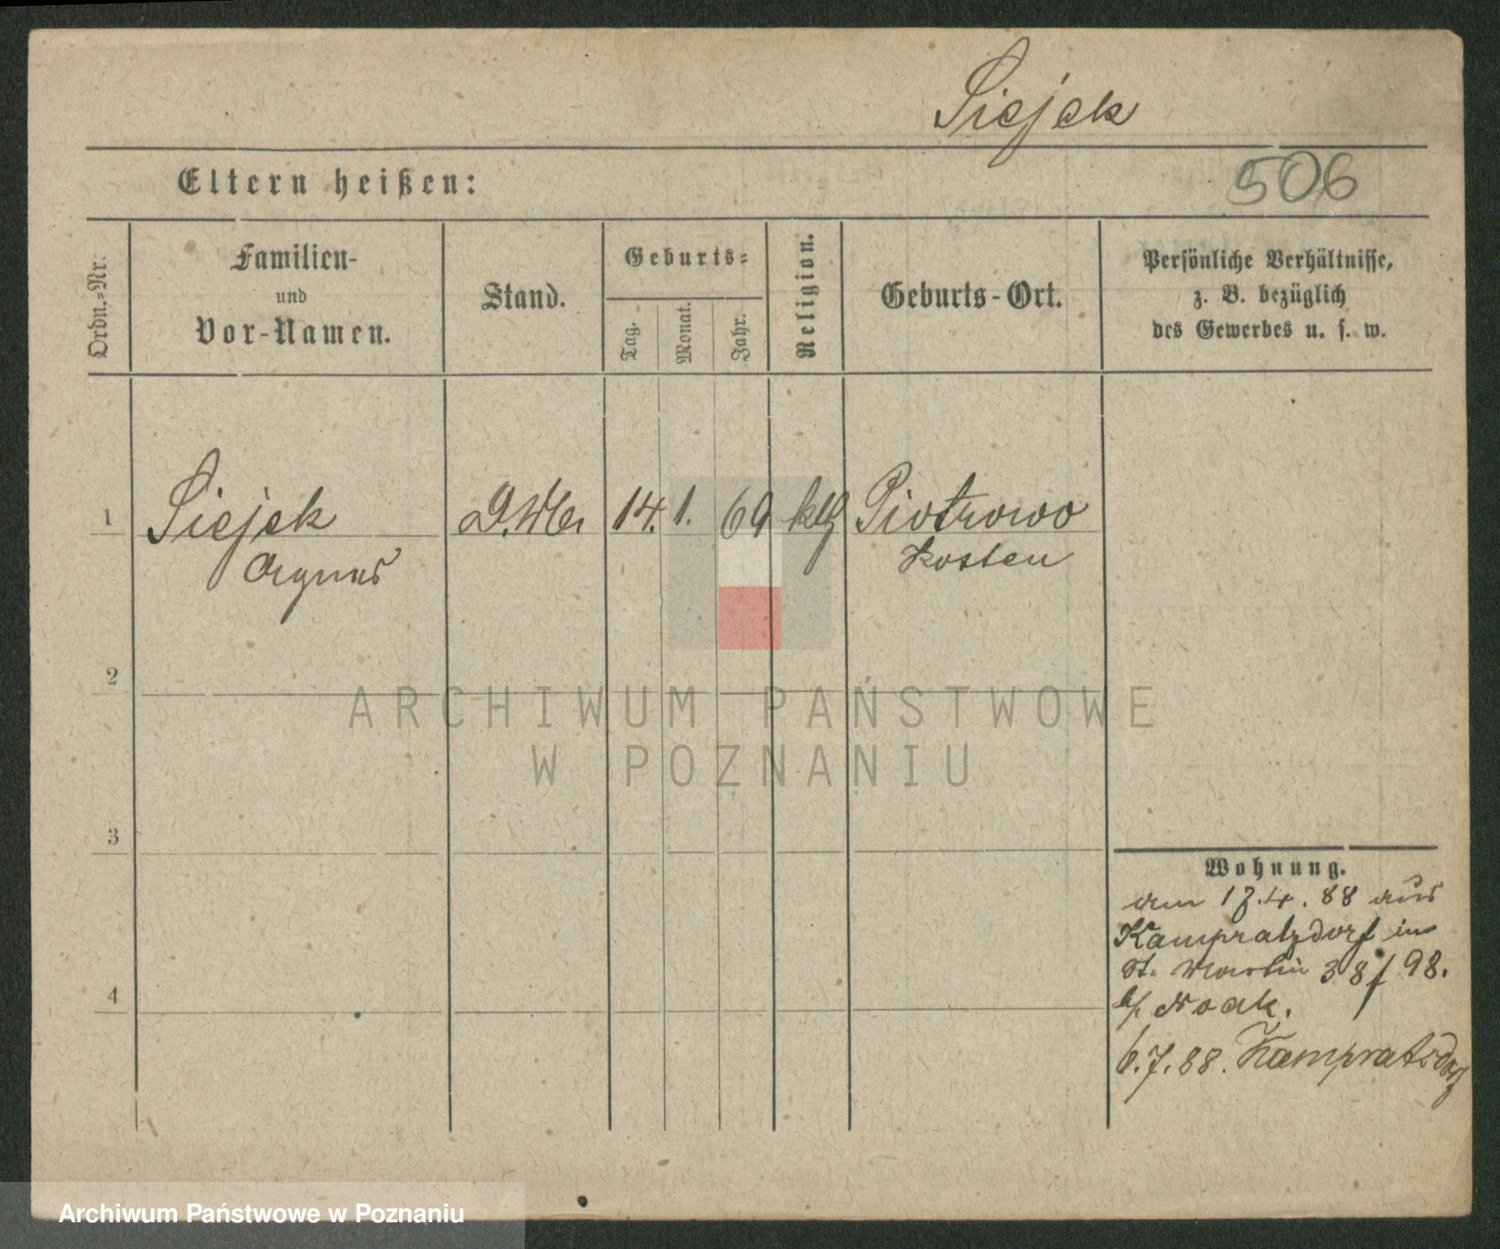 Siejek
506
Eltern heißen:
Ordn.-Nr.
Familien-
und
Vor-Namen.
Stand.
Geburts-
Tag.
Monat.
Jahr.
Religion.
Geburts-Ort.
Persönliche Verhältnisse,
z. B. bezüglich
des Gewerbes u. s. w.
1 Siejek 14. 1. 69 Piotrowo
Agnes Kosten
2
3
4
Wohnung.
am 17.4.88 aus
Kampratzdorf in
St. Martin 38/98.
b/ Noak.
6.7.88. Kampratzdorf
ARCHIWUM PAŃSTWOWE
W POZNANIU
Archiwum Państwowe w Poznaniu